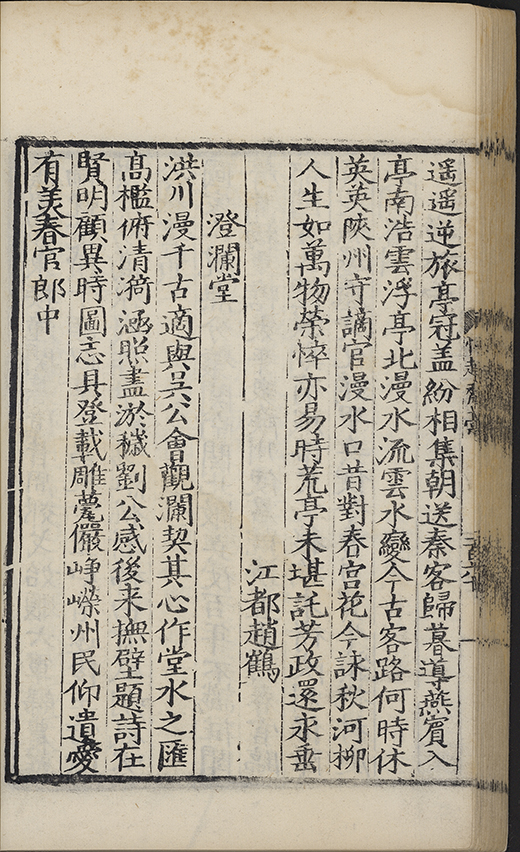 遥遥逆旅亭冠盖紛相集朝送秦客歸暮導燕賓入
亭南浩雲浮亭北漫水流雲水變今古客路何時休
英英陜州守謫官漫水口昔對春宫花今詠秋河栁
人生如萬物榮悴亦易時荒亭未堪託芳政還永垂
江都趙鶴
澄瀾堂
洪川漫千古適與吴公會觀瀾契其心作堂水之匯
髙檻俯清漪涵照盡淤穢劉公感後来撫壁題詩在
賢明顧異時圖志具登載雕甍儼崢嶸州民仰遺愛
有美春官郎中